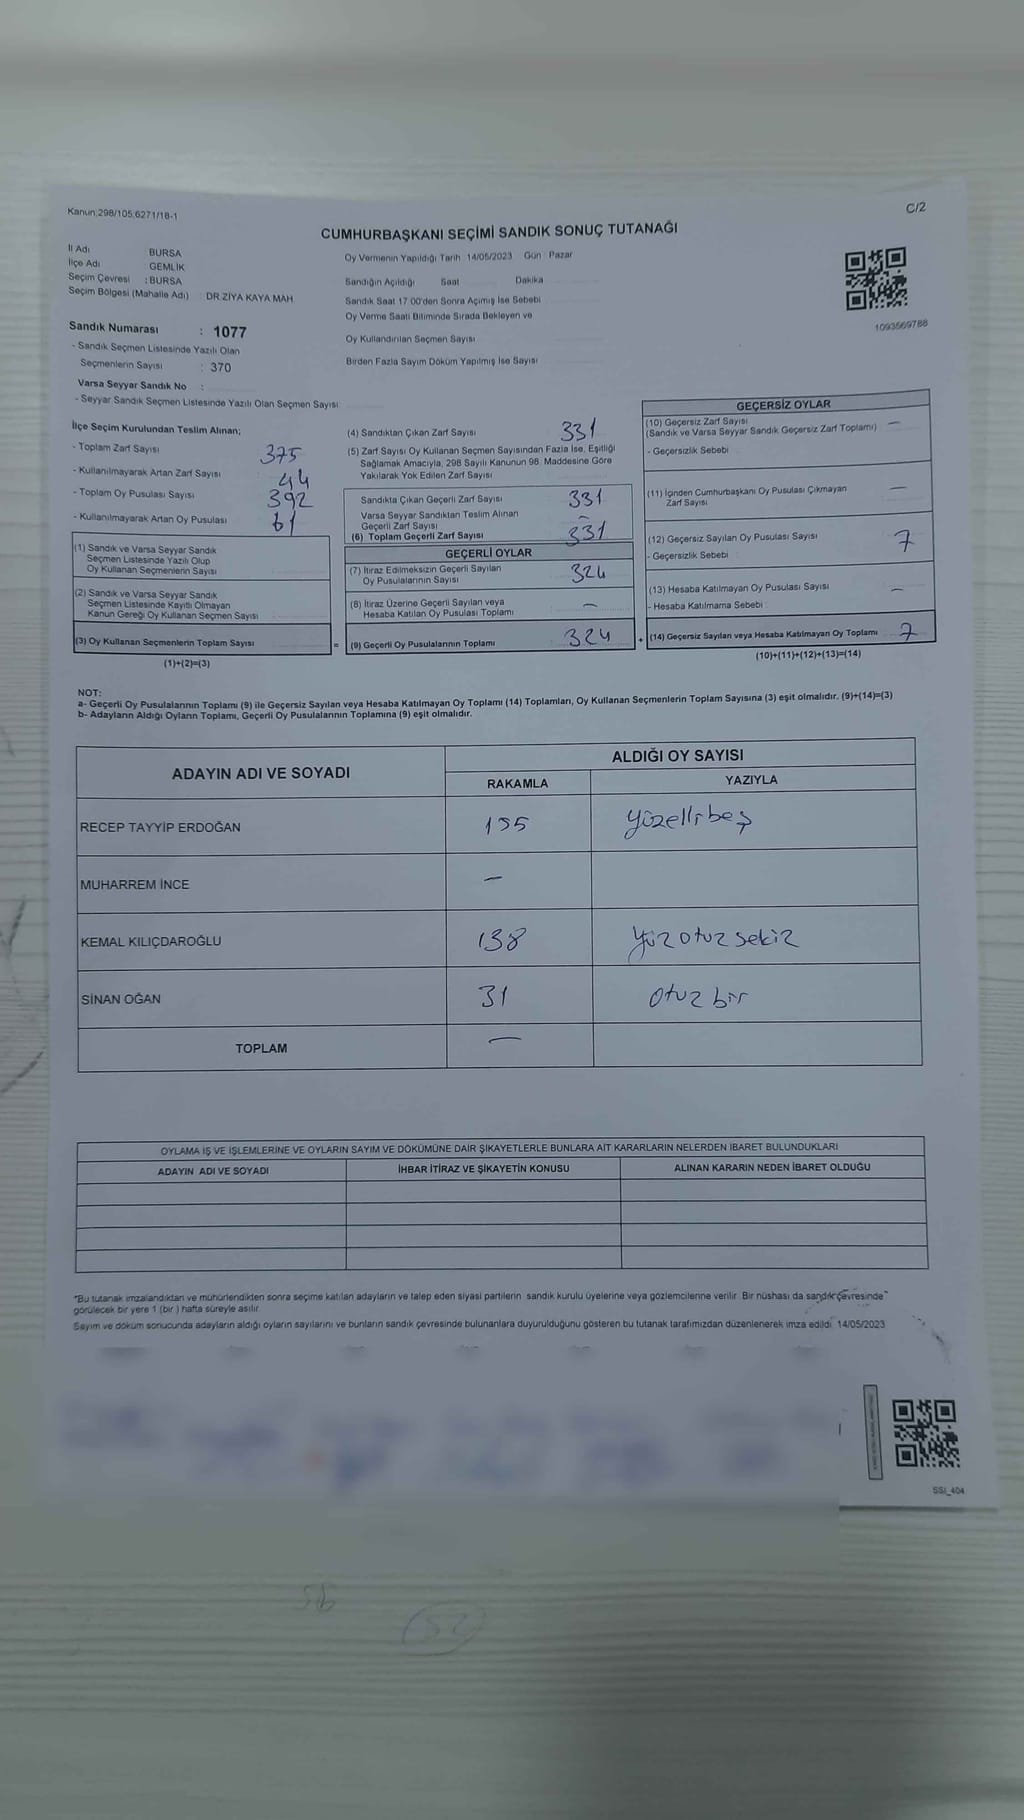 Kanun:298/105,6271/18-1
C/2
CUMHURBAŞKANI SEÇİMİ SANDIK SONUÇ TUTANAĞI
İl Adı BURSA
İlçe Adı GEMLİK
Seçim Çevresi : BURSA
Seçim Bölgesi (Mahalle Adı) : DR.ZİYA KAYA MAH
Sandık Numarası : 1077
- Sandık Seçmen Listesinde Yazılı Olan
Seçmenlerin Sayısı : 370
Varsa Seyyar Sandık No :
- Seyyar Sandık Seçmen Listesinde Yazılı Olan Seçmen Sayısı
Oy Vermenin Yapıldığı Tarih 14/05/2023 Gün Pazar
Sandığın Açıldığı Saat Dakika
Sandık Saat 17.00'den Sonra Açımış İse Sebebi
Oy Verme Saati Bitiminde Sırada Bekleyen ve
Oy Kullandırılan Seçmen Sayısı
Birden Fazla Sayım Döküm Yapılmış İse Sayısı
1093569788
İlçe Seçim Kurulundan Teslim Alınan;
- Toplam Zarf Sayısı 375
- Kullanılmayarak Artan Zarf Sayısı 44
- Toplam Oy Pusulası Sayısı 392
- Kullanılmayarak Artan Oy Pusulası 61
(1) Sandık ve Varsa Seyyar Sandık
Seçmen Listesinde Yazılı Olup
Oy Kullanan Seçmenlerin Sayısı
(2) Sandık ve Varsa Seyyar Sandık
Seçmen Listesinde Kayıtlı Olmayan
Kanun Gereği Oy Kullanan Seçmen Sayısı
(3) Oy Kullanan Seçmenlerin Toplam Sayısı =
(1)+(2)=(3)
(4) Sandıktan Çıkan Zarf Sayısı 331
(5) Zarf Sayısı Oy Kullanan Seçmen Sayısından Fazla İse, Eşitliği
Sağlamak Amacıyla, 298 Sayılı Kanunun 98. Maddesine Göre
Yakılarak Yok Edilen Zarf Sayısı
Sandıkta Çıkan Geçerli Zarf Sayısı 331
Varsa Seyyar Sandıktan Teslim Alınan
Geçerli Zarf Sayısı –
(6) Toplam Geçerli Zarf Sayısı 331
GEÇERLİ OYLAR
(7) İtiraz Edilmeksizin Geçerli Sayılan
Oy Pusulalarının Sayısı 324
(8) İtiraz Üzerine Geçerli Sayılan veya
Hesaba Katılan Oy Pusulası Toplamı –
(9) Geçerli Oy Pusulalarının Toplamı 324 +
GEÇERSİZ OYLAR
(10) Geçersiz Zarf Sayısı
(Sandık ve Varsa Seyyar Sandık Geçersiz Zarf Toplamı) –
- Geçersizlik Sebebi
(11) İçinden Cumhurbaşkanı Oy Pusulası Çıkmayan
Zarf Sayısı –
(12) Geçersiz Sayılan Oy Pusulası Sayısı 7
- Geçersizlik Sebebi
(13) Hesaba Katılmayan Oy Pusulası Sayısı –
- Hesaba Katılmama Sebebi
(14) Geçersiz Sayılan veya Hesaba Katılmayan Oy Toplamı 7
(10)+(11)+(12)+(13)=(14)
NOT:
a- Geçerli Oy Pusulalarının Toplamı (9) ile Geçersiz Sayılan veya Hesaba Katılmayan Oy Toplamı (14) Toplamları, Oy Kullanan Seçmenlerin Toplam Sayısına (3) eşit olmalıdır. (9)+(14)=(3)
b- Adayların Aldığı Oyların Toplamı, Geçerli Oy Pusulalarının Toplamına (9) eşit olmalıdır.
ADAYIN ADI VE SOYADI ALDIĞI OY SAYISI
RAKAMLA YAZIYLA
RECEP TAYYİP ERDOĞAN 155 Yüzellibeş
MUHARREM İNCE –
KEMAL KILIÇDAROĞLU 138 Yüz otuz sekiz
SİNAN OĞAN 31 otuz bir
TOPLAM –
OYLAMA İŞ VE İŞLEMLERİNE VE OYLARIN SAYIM VE DÖKÜMÜNE DAİR ŞİKAYETLERLE BUNLARA AİT KARARLARIN NELERDEN İBARET BULUNDUKLARI
ADAYIN ADI VE SOYADI İHBAR İTİRAZ VE ŞİKAYETİN KONUSU ALINAN KARARIN NEDEN İBARET OLDUĞU
"Bu tutanak imzalandıktan ve mühürlendikten sonra seçime katılan adayların ve talep eden siyasi partilerin sandık kurulu üyelerine veya gözlemcilerine verilir. Bir nüshası da sandık çevresinde"
görülecek bir yere 1 (bir ) hafta süreyle asılır.
Sayım ve döküm sonucunda adayların aldığı oyların sayılarını ve bunların sandık çevresinde bulunanlara duyurulduğunu gösteren bu tutanak tarafımızdan düzenlenerek imza edildi. 14/05/2023
SSI_404
56
52